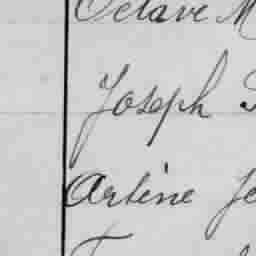 Octave M
Joseph
Arline Je